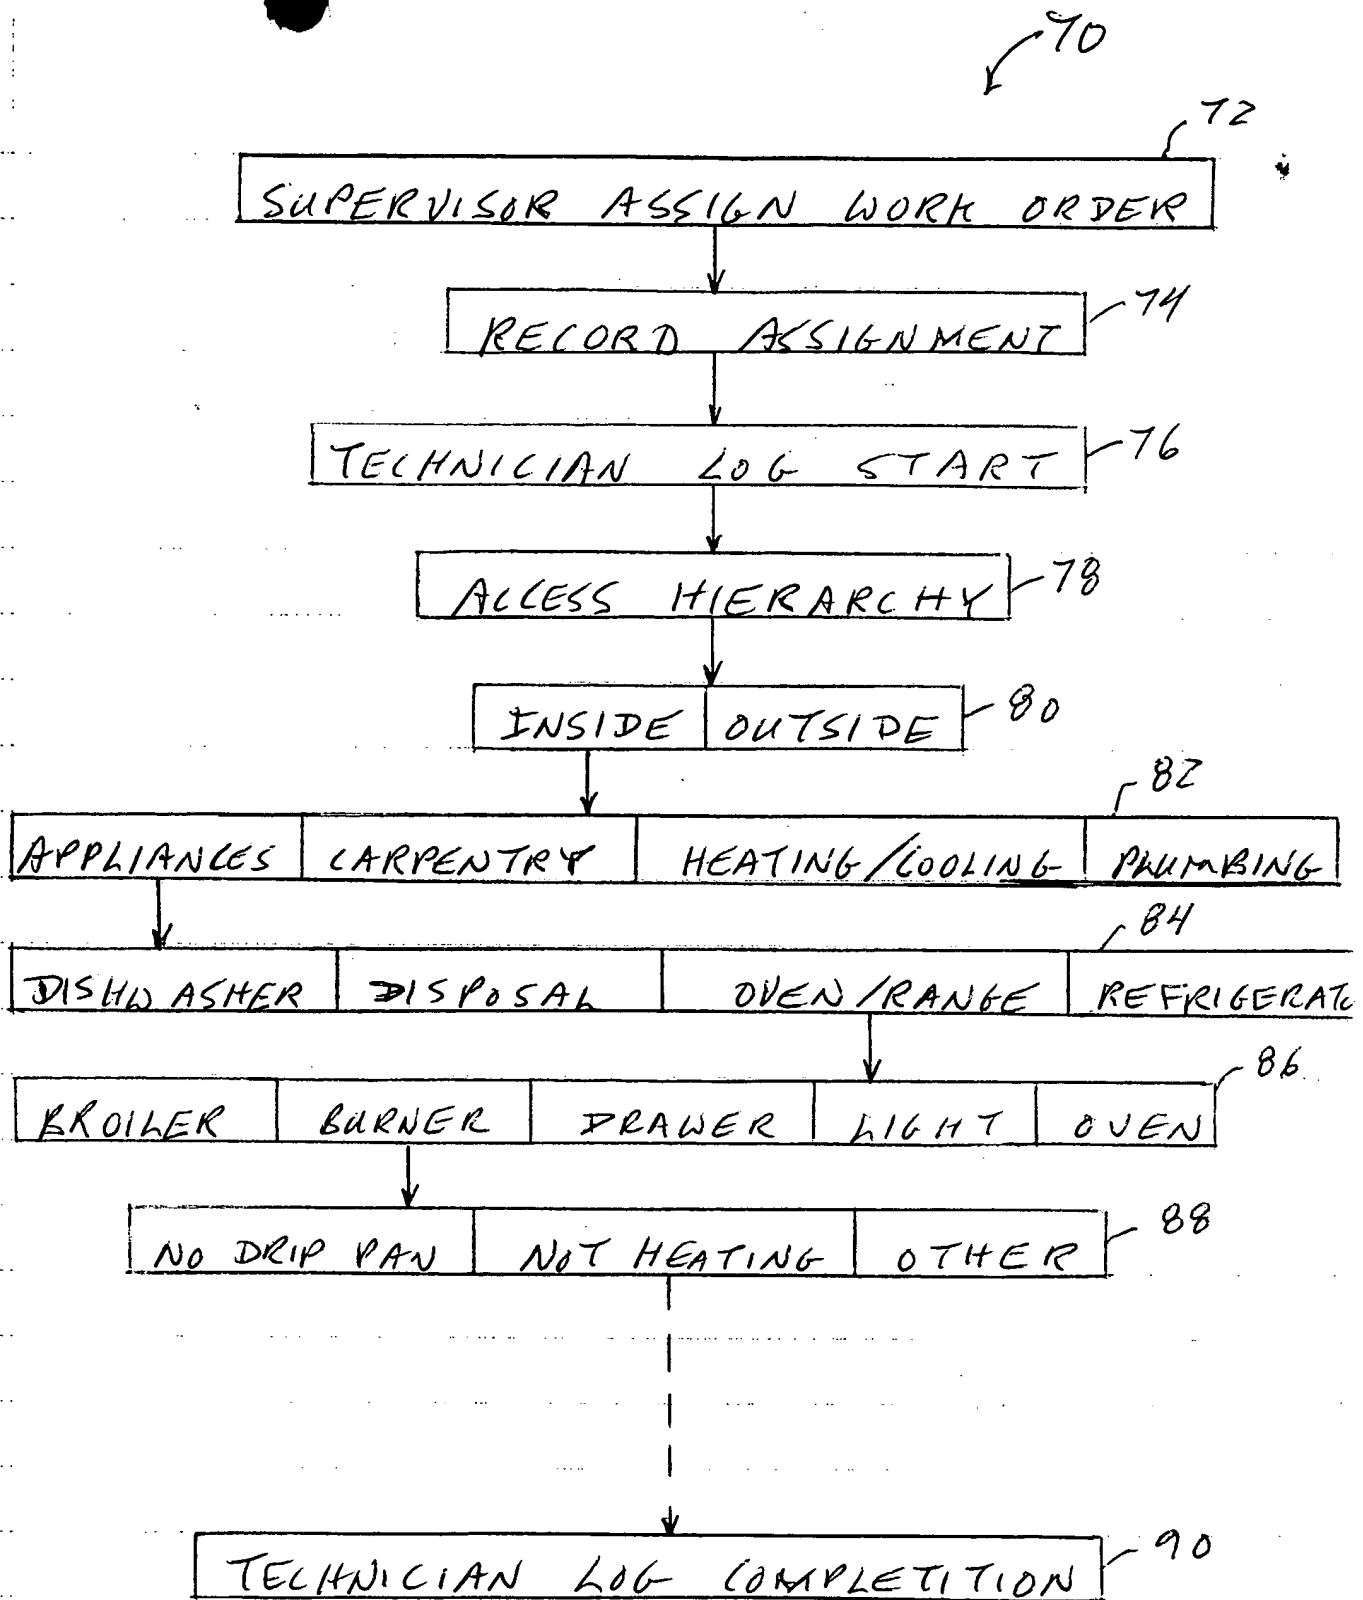 70
72
SUPERVISOR ASSIGN WORK ORDER
74
RECORD ASSIGNMENT
76
TECHNICIAN LOG START
78
ACCESS HIERARCHY
80
INSIDE OUTSIDE
82
APPLIANCES CARPENTRY HEATING/COOLING PLUMBING
84
DISHWASHER DISPOSAL OVEN/RANGE REFRIGERATO
86
BROILER BURNER DRAWER LIGHT OVEN
88
NO DRIP PAN NOT HEATING OTHER
90
TECHNICIAN LOG COMPLETITION